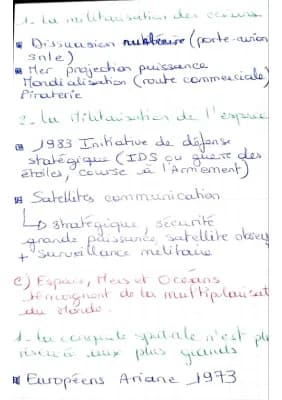 1. La militarisation des océans
Dissuasion nucléaire (porte-avion
snle)
Mer projection puissance
Mondialisation (route commerciale)
Piraterie
2- La Militarisation de l'espace
1983 Initiative de défense
stratégique (IDS ou guerre des
étoiles, course à l'Armement)
Satellites communication
↳ stratégique, sécurité
grande puissance, satellite observ
+ Surveillance militaire
C) Espace, Mers et Océans
témoignent de la multipolarisat
du Monde.
1- La conquête spatiale n'est plu
réservée aux plus grands
Européens Ariane 1973